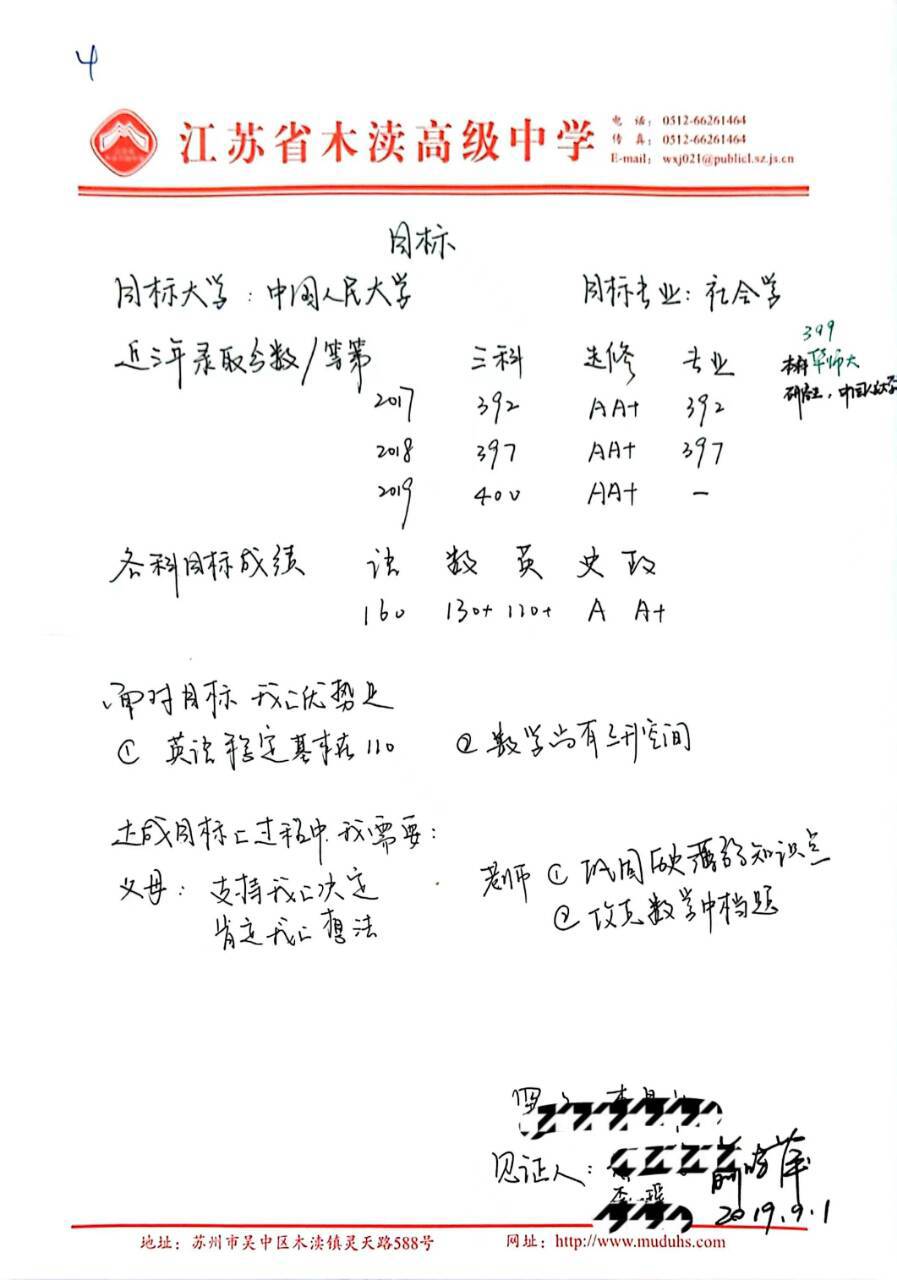 4
江苏省木渎高级中学
电 话: 0512-66261464
传 真: 0512-66261464
E-mail: wxj021@public1.sz.js.cn
目标
目标大学:中国人民大学 目标专业:社会学
399
本科 华师大
研究生,中国人民大学
近三年录取分数/等第 三科 选修 专业
2017 392 AA+ 392
2018 397 AA+ 397
2019 400 AA+ —
各科目标成绩 语 数 英 史 政
160 130+ 110+ A A+
面对目标 我的优势是
① 英语稳定基本在110 ② 数学尚有上升空间
达成目标的过程中,我需要:
父母:支持我的决定
肯定我的想法
老师 ① 巩固历史薄弱知识点
② 攻克数学中档题
见证人:
2019.9.1
地址:苏州市吴中区木渎镇灵天路588号 网址:http://www.muduhs.com